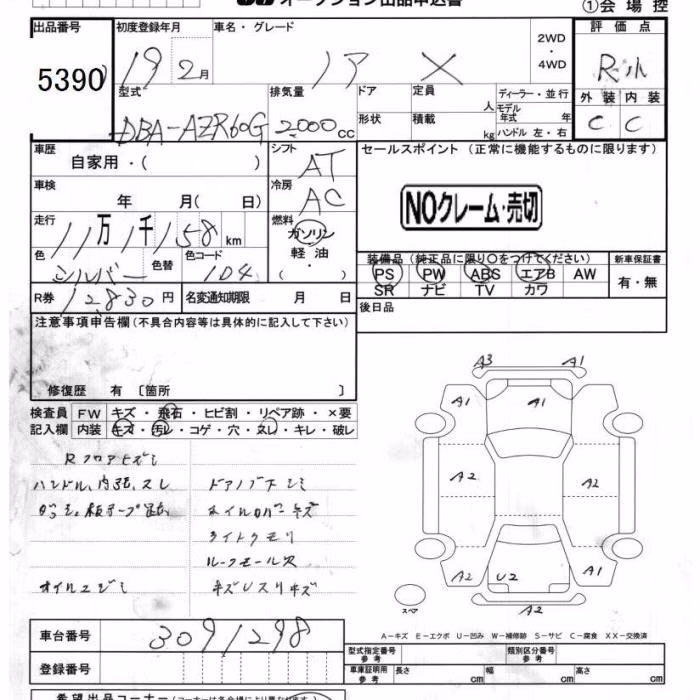 オークション出品申込書
①会場控
出品番号 初度登録年月 車名・グレード 2WD・4WD 評価点
5390 19 2月 ノア X R小
型式 排気量 ドア 定員 人 ディーラー・並行 外装 内装
DBA-AZR60G 2000cc 形状 積載 kg モデル年式 年 ハンドル 左・右 C C
車歴 自家用・( ) シフト AT セールスポイント (正常に機能するものに限ります)
車検 年 月( 日) 冷房 AC
NOクレーム・売切
走行 11万1千158km 燃料 ガソリン・軽油・( )
色 シルバー 色替 色コード 1D4 装備品 (純正品に限り○をつけてください) 新車保証書
PS PW ABS エアB AW 有・無
SR ナビ TV カワ
R券 12,830円 名変通知期限 月 日 後日品
注意事項申告欄 (不具合内容等は具体的に記入して下さい)
修復歴 有 〔箇所 〕
検査員 FW キズ・飛石・ヒビ割・リペア跡・×要
記入欄 内装 キズ・汚レ・コゲ・穴・スレ・キレ・破レ
Rフロアヒズミ
ハンドル、内張、スレ ドアノブ下シミ
ホイルカバーキズ
ライトクモリ
ルーフモール欠
オイルニジミ キズUスリキズ
A3 A1
A1 A1 A1
A2 A2
A2 U2 A1
A2
スペア
A-キズ E-エクボ U-凹み W-補修跡 S-サビ C-腐食 XX-交換済
車台番号 3091298
型式指定番号 参考 類別区分番号 参考
登録番号 車庫証明用 参考 長さ cm 幅 cm 高さ cm
希望出品コーナー